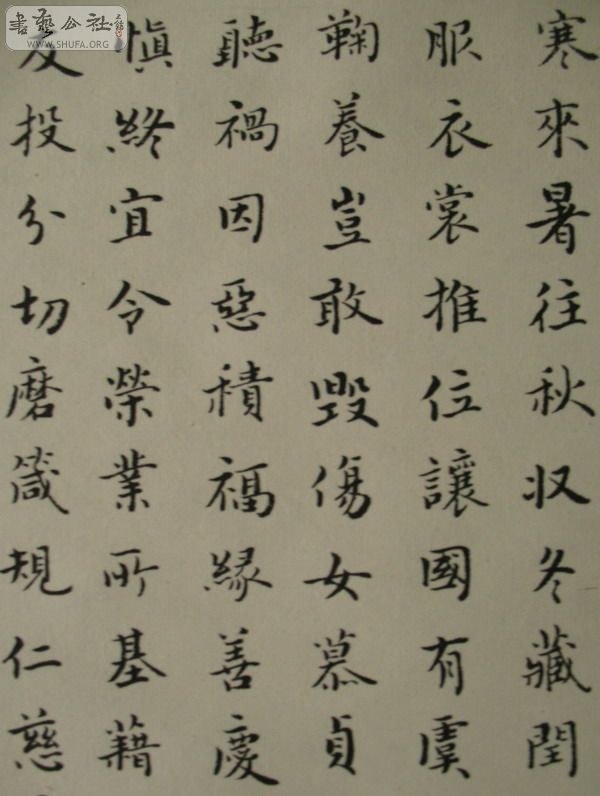 寒來暑往秋収冬藏閏
服衣裳推位讓國有虞
鞠養豈敢毀傷女慕貞
聽禍因惡積福緣善慶
慎終宜令榮業所基藉
友投分切磨箴規仁慈
書藝公社
WWW.SHUFA.ORG